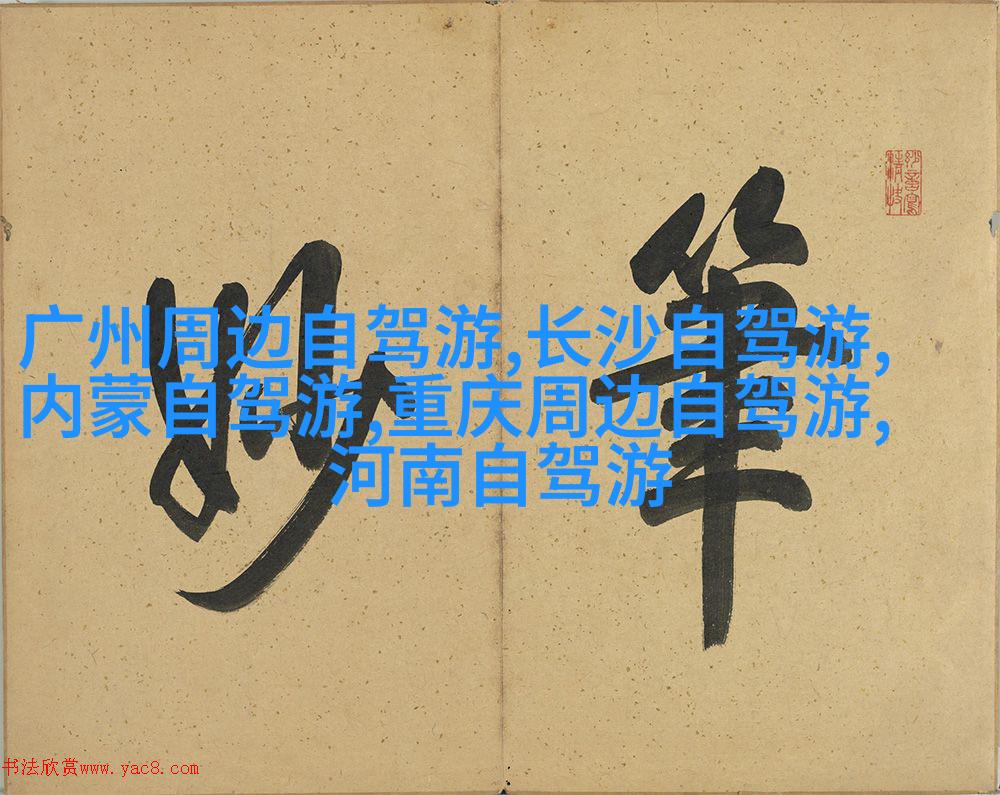 広州周边自驾游,长沙自驾游,
内蒙自驾游,重庆周边自驾游,
河南自驾游
筆
妙
书法欣赏www.yac8.com